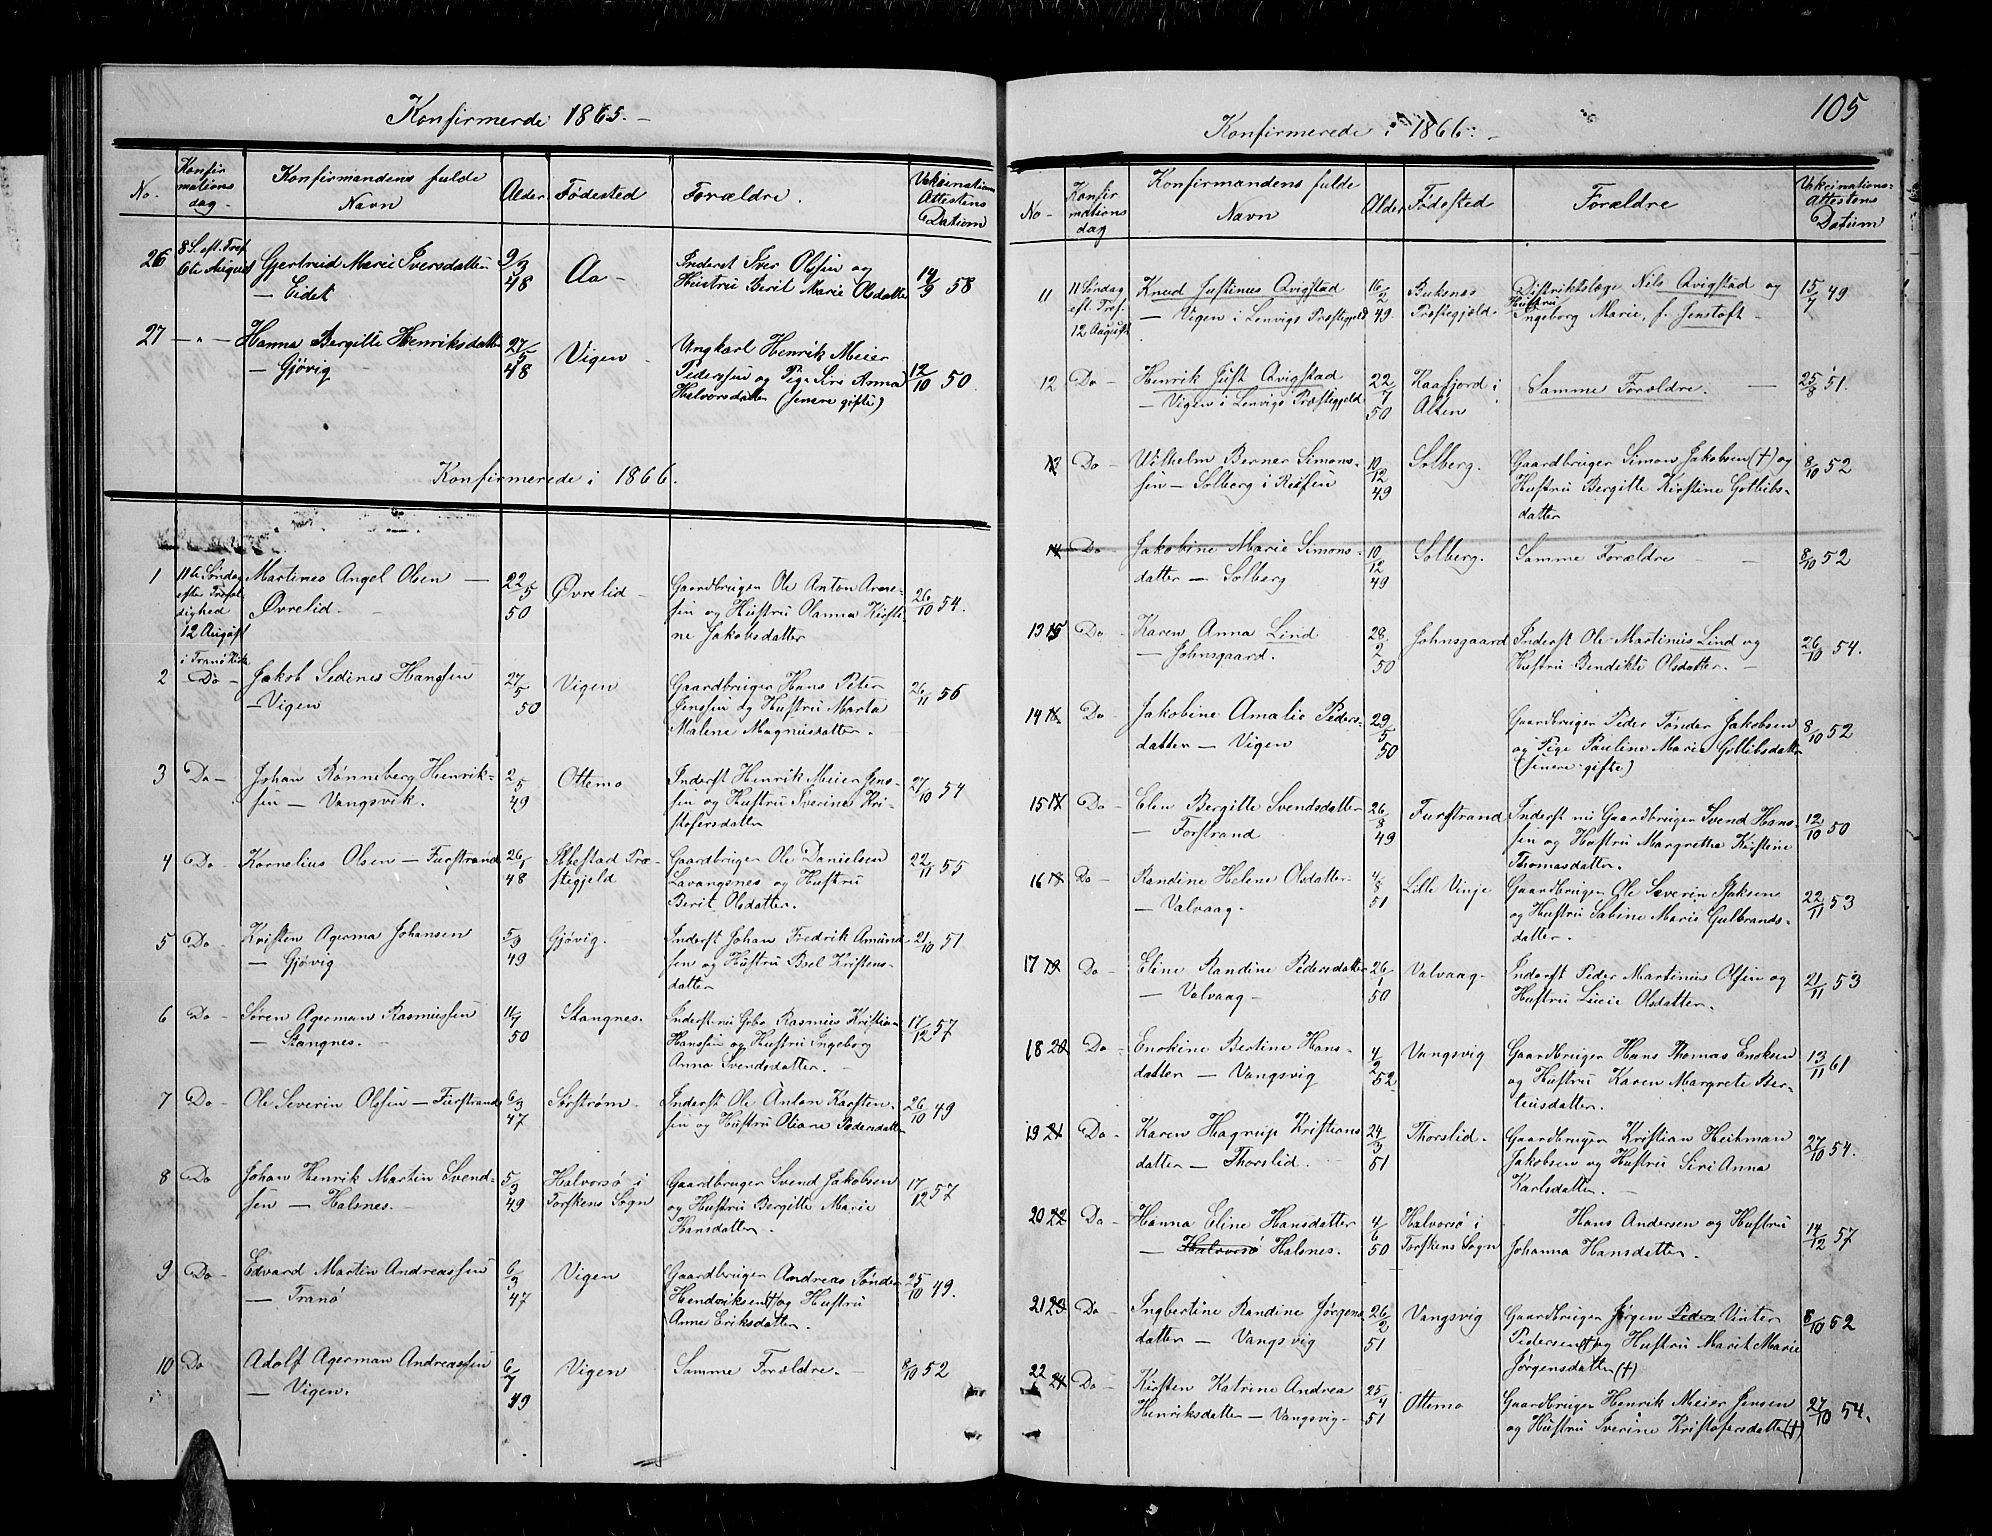 Konfirmerde 1865.
No. Konfirmationsdag. Konfirmandens fulde Navn Alder Fødested Forældre. Vakcinations Attestens Datum
26 8 S. eft. Tref. 6te August Gjertrud Marie Iversdatter 9/3 48 Aa - Inderst Iver Olssen og 14/9 58
- Eidet Hustru Berit Marie Olsdatter
27 - " - Hanna Bergitte Henriksdatter 27/5 48 Vigen Ungkarl Henrik Meier 12/10 50
- Gjøvig Pederssen og Pige Siri Anna
Halvorsdatter (senere gifte)
Konfirmerede i 1866.
1 11te Søndag efter Trefoldighed 12 August i Tranø Kirke Martines Angel Olsen 22/5 50 Øvrelid Gaardbruger Ole Anton Arne- 26/10 54.
Øvrelid. sen og Hustru Olanna Kirsti-
ne Jakobsdatter
2 Do - Jakob Sedines Hanssen 27/5 50 Vigen Gaardbruger Hans Peter 26/11 56
- Vigen Jenssen og Hustru Marta
Malena Magnusdatter.
3 Do - Johan Rønneberg Henrik- 2/5 49 Ottemo Inderst Henrik Meier Jens- 27/10 54
sen - Vangsvik. sen og Hustru Iverine Kri-
stofersdatter
4 Do - Kornelius Olsen - Furstrand 26/1 48 Ibestad Præ- Gaardbruger Ole Danielsen 22/11 55
stegjeld Lavangsnes og Hustru
Berit Olsdatter.
5 Do - Kristen Agerma Johansen 5/3 49 Gjøvig. Inderst Johan Fredrik Amund- 21/10 51
- Gjøvig sen og Hustru Beel Kristens-
datter
6 Do - Søren Agerman Rasmussen 50 Stangnes. Inderst nu Grbr Rasmus Kristian 17/12 57
- Stangnes. Hanssen og Hustru Ingeborg
Anna Svendsdatter.
7 Do - Ole Severin Olssen - Furstrand 6/3 47 Sørstrøm Inderst Ole Anton Karsten- 26/10 49
sen og Hustru Oliane Pedersdatter
8 Do Johan Henrik Martin Svend- 5/3 49 Halvorsø i Gaardbruger Svend Jakobsen 17/12 57
sen - Halsnes. Torskens Sogn og Hustru Bergitte Marie
Hansdatter.
9 Do - Edvard Martin Andreassen 6/3 47 Vigen Gaardbruger Andreas Tønder 25/10 49.
- Tranø Hendriksen (+) og Hustru
Anne Eriksdatter.
10 Do Adolf Agerman Andreassen 6/7 49 Vigen Samme Forældre. - 8/10 52
- Vigen.
105
Konfirmerede i 1866.
No - Konfirmationsdag Konfirmandens fulde Navn Alder Fødested Forældre Vakcinations- Attestens Datum
11 11 Søndag eft. Tref. 12 August Knud Justinus Qvigstad 16/2 49 Buksnes Distriktslæge Nils Qvigstad og 15/7 49
- Vigen i Lenvigs Præstegjeld Præstegjeld Hustru Ingeborg Marie, f. Jenstoft
12 Do - Henrik Just Qvigstad 22/7 50 Kaafjord i Samme Forældre. 25/8 51.
- Vigen i Lenvigs Præstegjeld Alten
13 Do - Vilhelm Berner Simons- 10/12 49 Solberg. Gaardbruger Simon Jakobsen (+) og 8/10 52
sen - Solberg i Reisen Hustru Bergitte Kirstine Gotlibs-
datter
14 Do Jakobine Marie Simons- 10/12 49 Solberg. Samme Forældre 8/10 52
datter - Solberg
13 15 Do - Karen Anna Lind 28/2 50 Johnsgaard Inderst Ole Martinus Lind og 26/10 54.
- Johnsgaard. Hustru Bendikte Olsdatter.
14 16 Do - Jakobine Amalie Peders- 29/5 50 Gaardbruger Peder Tønder Jakobsen 8/10 52
datter - Vigen og Pige Pauline Marie Gotlibsdatter
(senere gifte)
15 17 Do - Elen Bergitte Svendsdatter 26/8 49 Furstrand Inderst nu Gaardbruger Svend Hans- 12/10 50
- Forstrand sen og Hustru Margretha Kirstine
Thomasdatter.
16 18 Do - Randine Helene Olsdatter 4/8 51 Lille Vinje Gaardbruger Ole Severin Isaksen 22/11 53
- Valvaag. og Hustru Sabine Marie Gulbrands-
datter.
17 19 Do - Eline Randine Pedersdatter 26/1 50 Valvaag Inderst Peder Martinus Olsen og 21/11 53
- Valvaag - Hustru Lucie Olsdatter.
18 20 Do - Enokine Bertine Hans- 4/2 52 Vangsvig Gaardbruger Hans Thomas Enoksen 13/11 61
datter - Vangsvig og Hustru Karen Margrete Ber-
teusdatter.
19 21 Do - Karen Hagrup Kristians 24/3 51 Thorslid. Gaardbruger Kristian Heitman 27/10 54.
datter - Thorslid. Jakobsen og Hustru Siri Anna
Karlsdatter.
20 22 Do - Hanna Eline Hansdatter 4/6 50 Halvorsø i Hans Andersen og Hustru 14/12 57
- Halvorsø Halsnes. Torskens Sogn Johanna Hansdatter.
21 23 Do - Ingbertine Randine Jørgens 26/2 51 Vangsvig Gaardbruger Jørgen Peders Vinter 8/10 52
datter - Vangsvig Pedersen (+) og Hustru Marit Marie
Jørgensdatter (+)
22 24 Do - Kirsten Katrine Andrea 25/4 51 Ottemo Gaardbruger Henrik Meier Jensen 27/10 54.
Henriksdatter - Vangsvig - og Hustru Iverine Kristofersdatter (+)